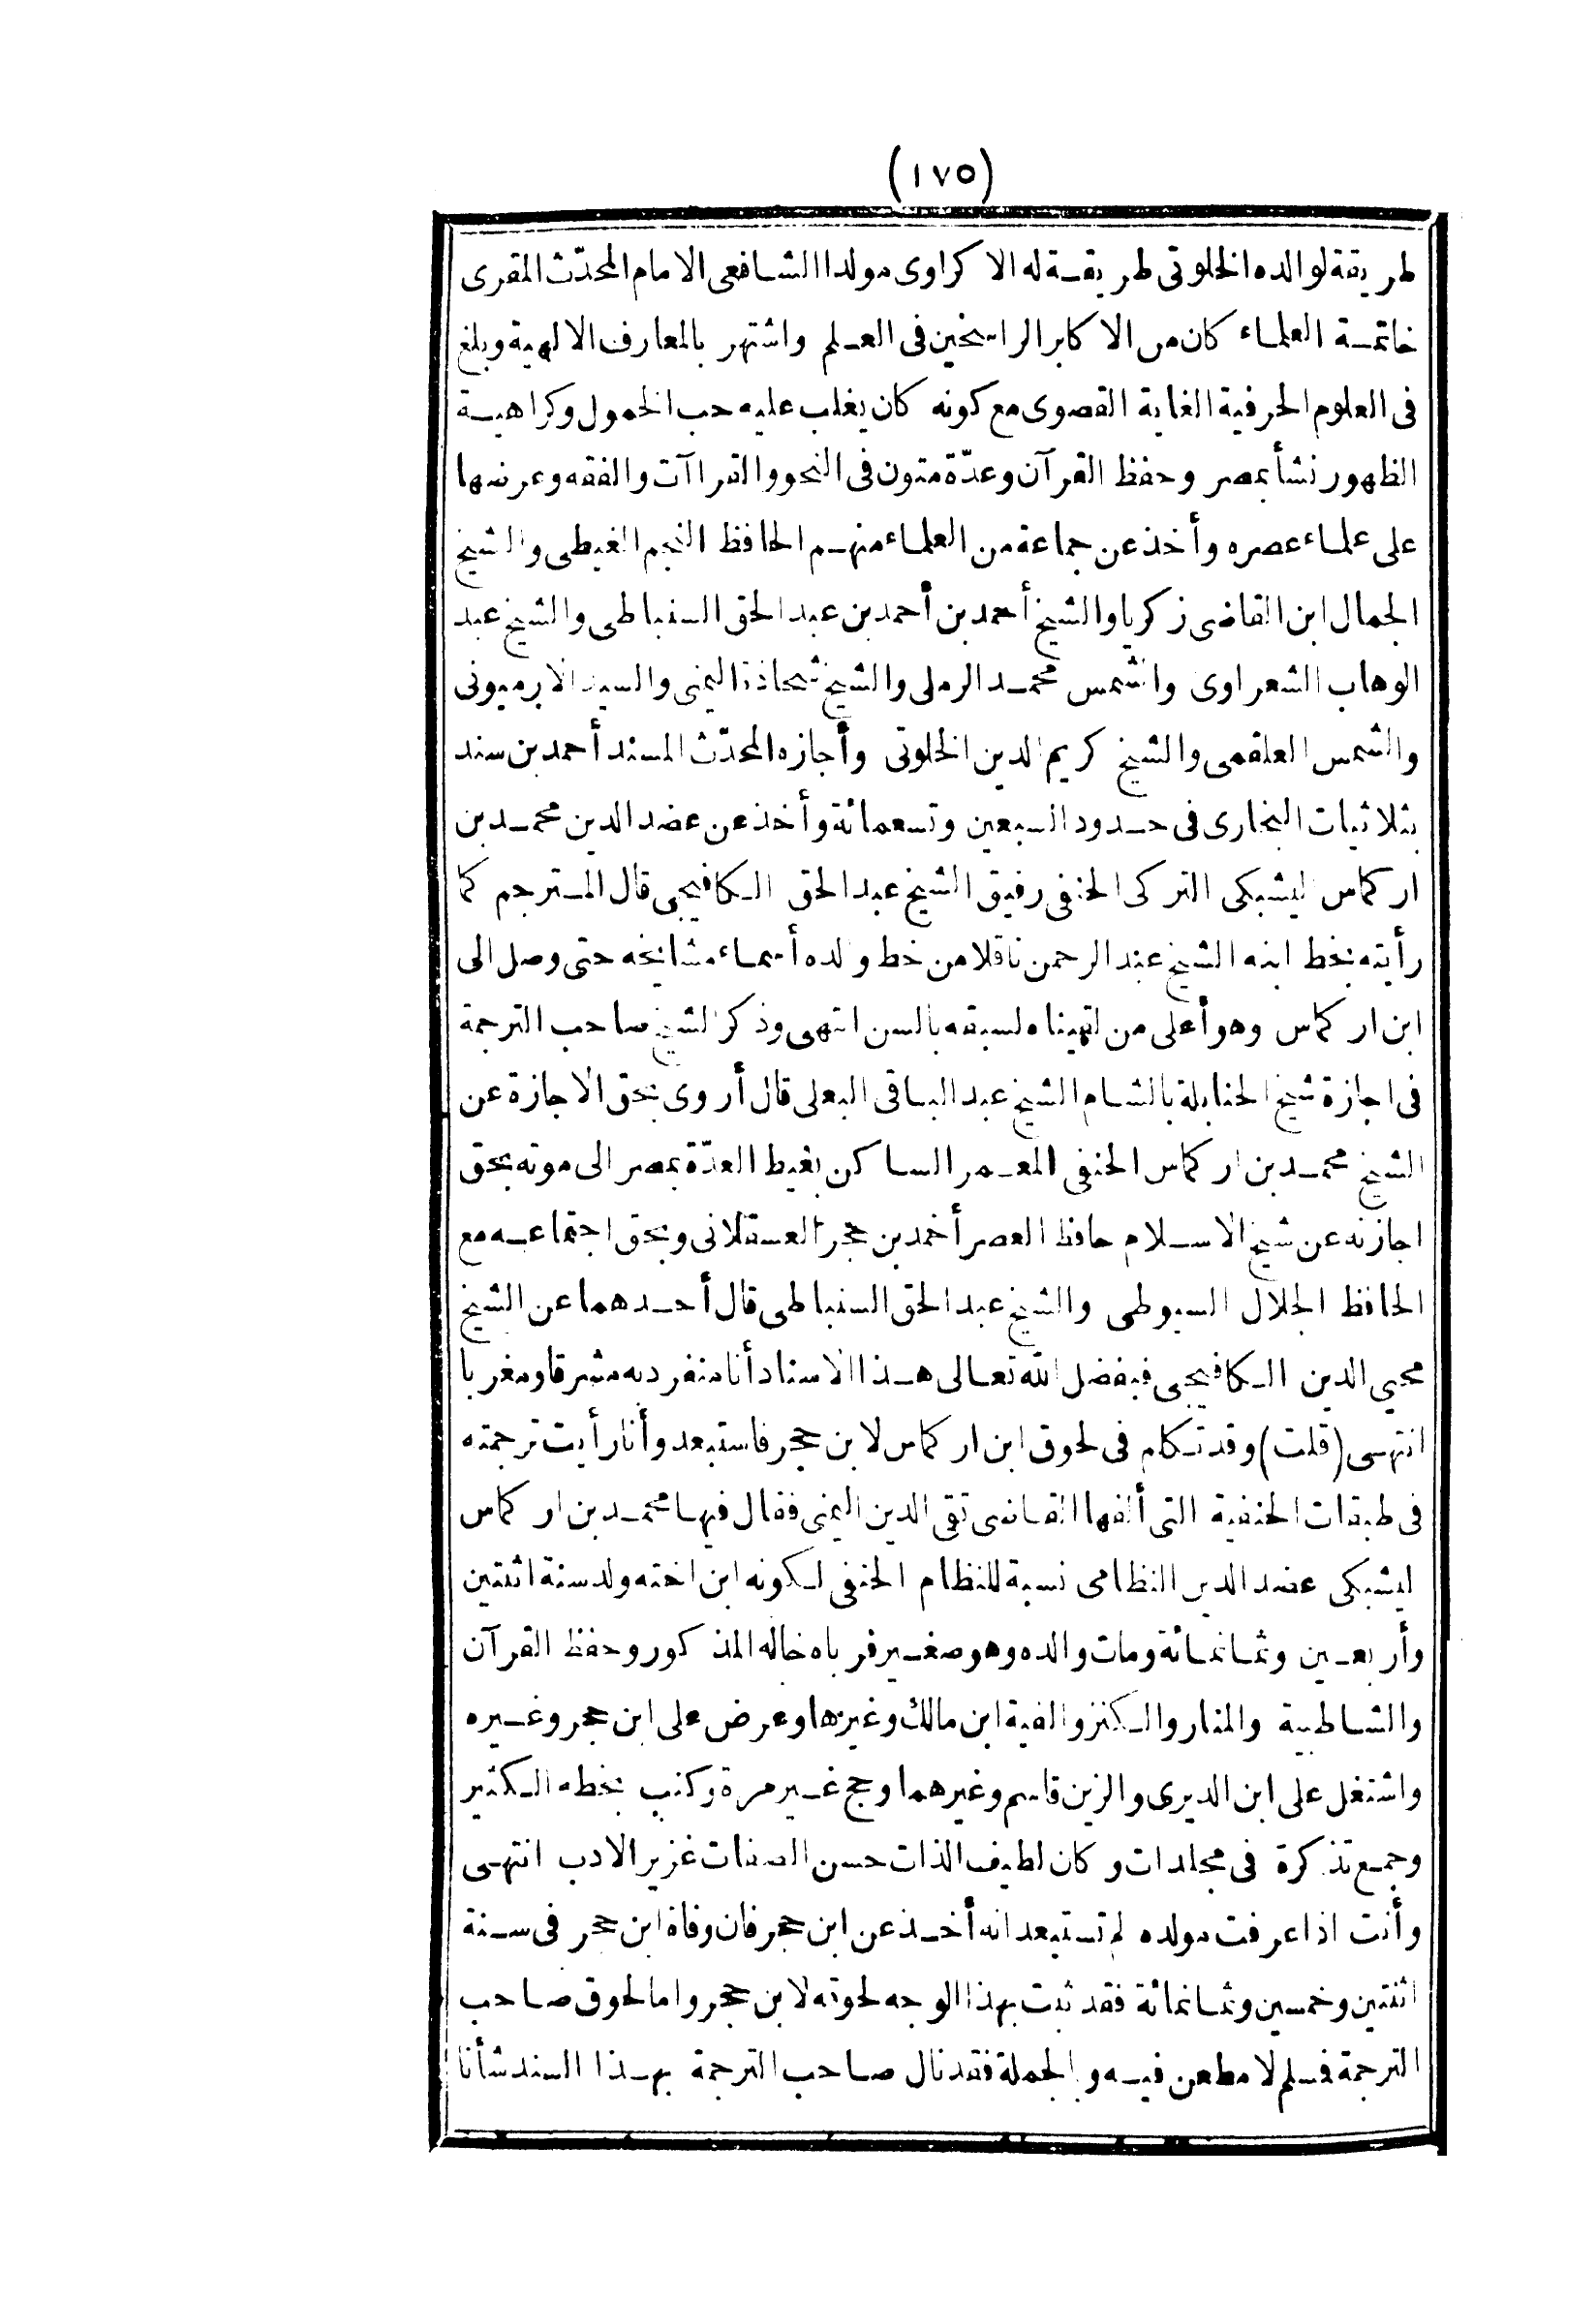 (١٧٥)
طريقة لوالده الخلوتى طريقة له الاكراوى مولدا الشافعى الامام المحدّث المقرى
خاتمة العلماء كان من الاكابر الراسخين فى العلم واشتهر بالمعارف الالهية وبلغ
فى العلوم الحرفية الغاية القصوى مع كونه كان يغلب عليه حب الخمول وكراهية
الظهور نشأ بمصر وحفظ القرآن وعدّة متون فى النحو والقراآت والفقه وعرضها
على علماء عصره وأخذ عن جماعة من العلماء منهم الحافظ النجم الغيطى والشيخ
الجمال ابن القاضى زكريا والشيخ أحمد بن أحمد بن عبد الحق السنباطى والشيخ عبد
الوهاب الشعراوى والشمس محمد الرملى والشيخ شحاذة اليمنى والسيد الارميونى
والشمس العلقمى والشيخ كريم الدين الخلوتى وأجازه المحدّث المسند أحمد بن سند
بثلاثيات البخارى فى حدود السبعين وتسعمائة وأخذ عن عضد الدين محمد بن
اركماس اليشبكى التركى الحنفى رفيق الشيخ عبد الحق الكافيجى قال المترجم كما
رأيته بخط ابنه الشيخ عبد الرحمن ناقلا من خط والده أسماء مشايخه حتى وصل الى
ابن اركماس وهو أعلى من لقيناه لسبقه بالسن انتهى وذكر الشيخ صاحب الترجمة
فى اجازة شيخ الحنابلة بالشام الشيخ عبد الباقى البعلى قال أروى بحق الاجازة عن
الشيخ محمد بن اركماس الحنفى المعمر الساكن بغيط العدّة بمصر الى موته بحق
اجازته عن شيخ الاسلام حافظ العصر أحمد بن حجر العسقلانى وبحق اجتماعه مع
الحافظ الجلال السيوطى والشيخ عبد الحق السنباطى قال أحدهما عن الشيخ
محيي الدين الكافيجى فبفضل الله تعالى هذا الاسناد أنا منفرد به مشرقا ومغربا
انتهى (قلت) وقد تكلم فى لحوق ابن اركماس لابن حجر فاستبعد وأنا رأيت ترجمته
فى طبقات الحنفية التى ألفها القاضى تقى الدين اليمنى فقال فيها محمد بن اركماس
ليشبكى عضد الدين النظامى نسبة للنظام الحنفى لكونه ابن اخته ولد سنة اثنتين
وأربعين وثمانمائة ومات والده وهو صغير فرباه خاله المذكور وحفظ القرآن
والشاطبية والمنار والكنز والفية ابن مالك وغيرها وعرض على ابن حجر وغيره
واشتغل على ابن الديرى والزين قاسم وغيرهما وحج غير مرة وكتب بخطه الكثير
وجمع تذكرة فى مجلدات وكان لطيف الذات حسن الصفات غزير الادب انتهى
وأنت اذا عرفت مولده لم تستبعد انه أخذ عن ابن حجر فان وفاة ابن حجر فى سنة
اثنتين وخمسين وثمانمائة فقد ثبت بهذا الوجه لحوقه لابن حجر واما لحوق صاحب
الترجمة فسلم لا مطعن فيه وبالجملة فقد نال صاحب الترجمة بهذا السند شأنا